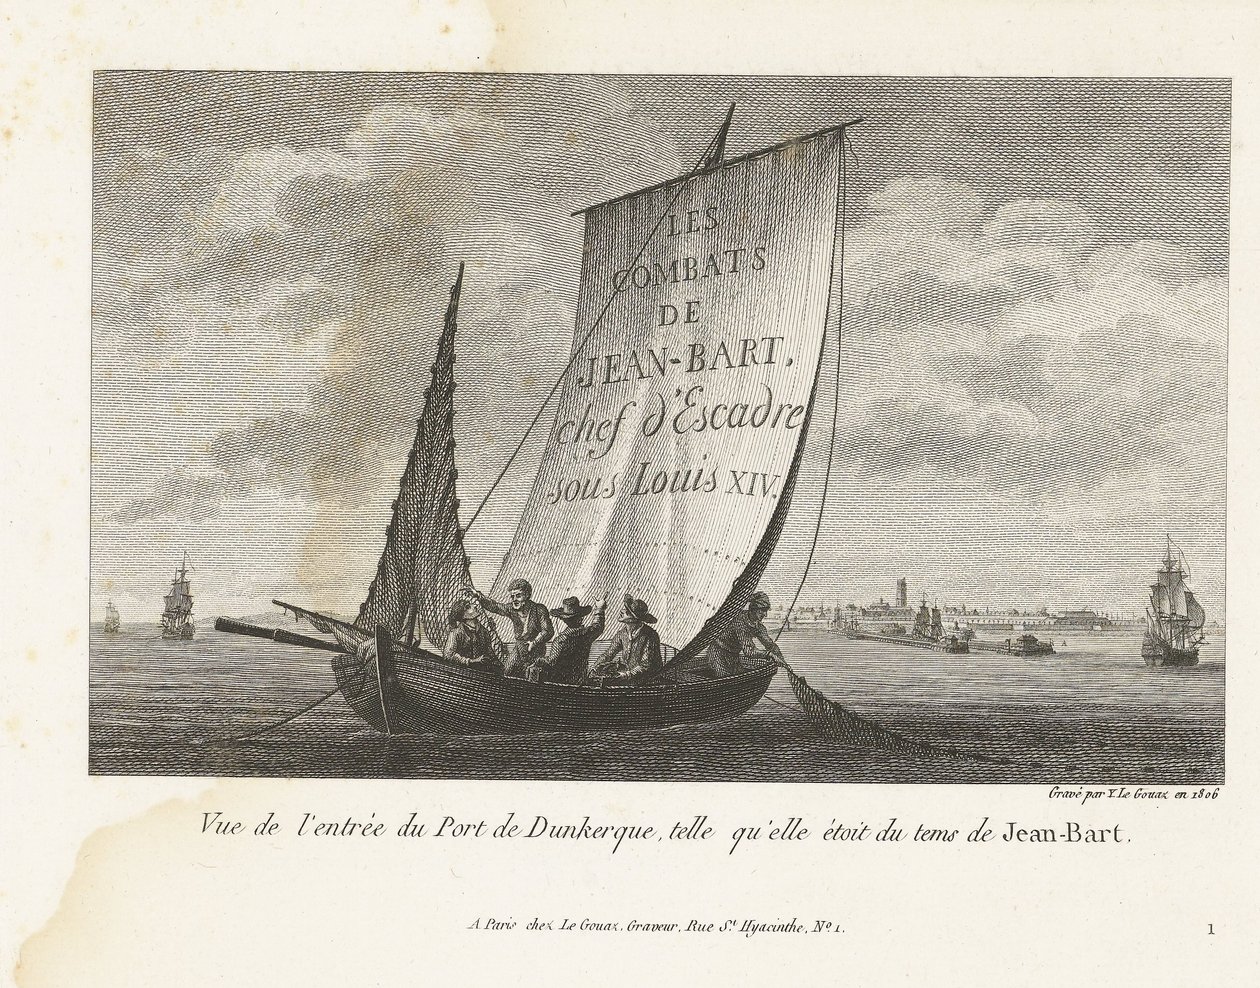 LES
COMBATS
DE
JEAN-BART,
chef d'Escadre
sous Louis XIV.
Gravé par Y. Le Gouaz en 1806
Vue de l'entrée du Port de Dunkerque, telle qu'elle étoit du tems de Jean-Bart.
A Paris chez Le Gouaz, Graveur, Rue St. Hyacinthe, No. 1.
1